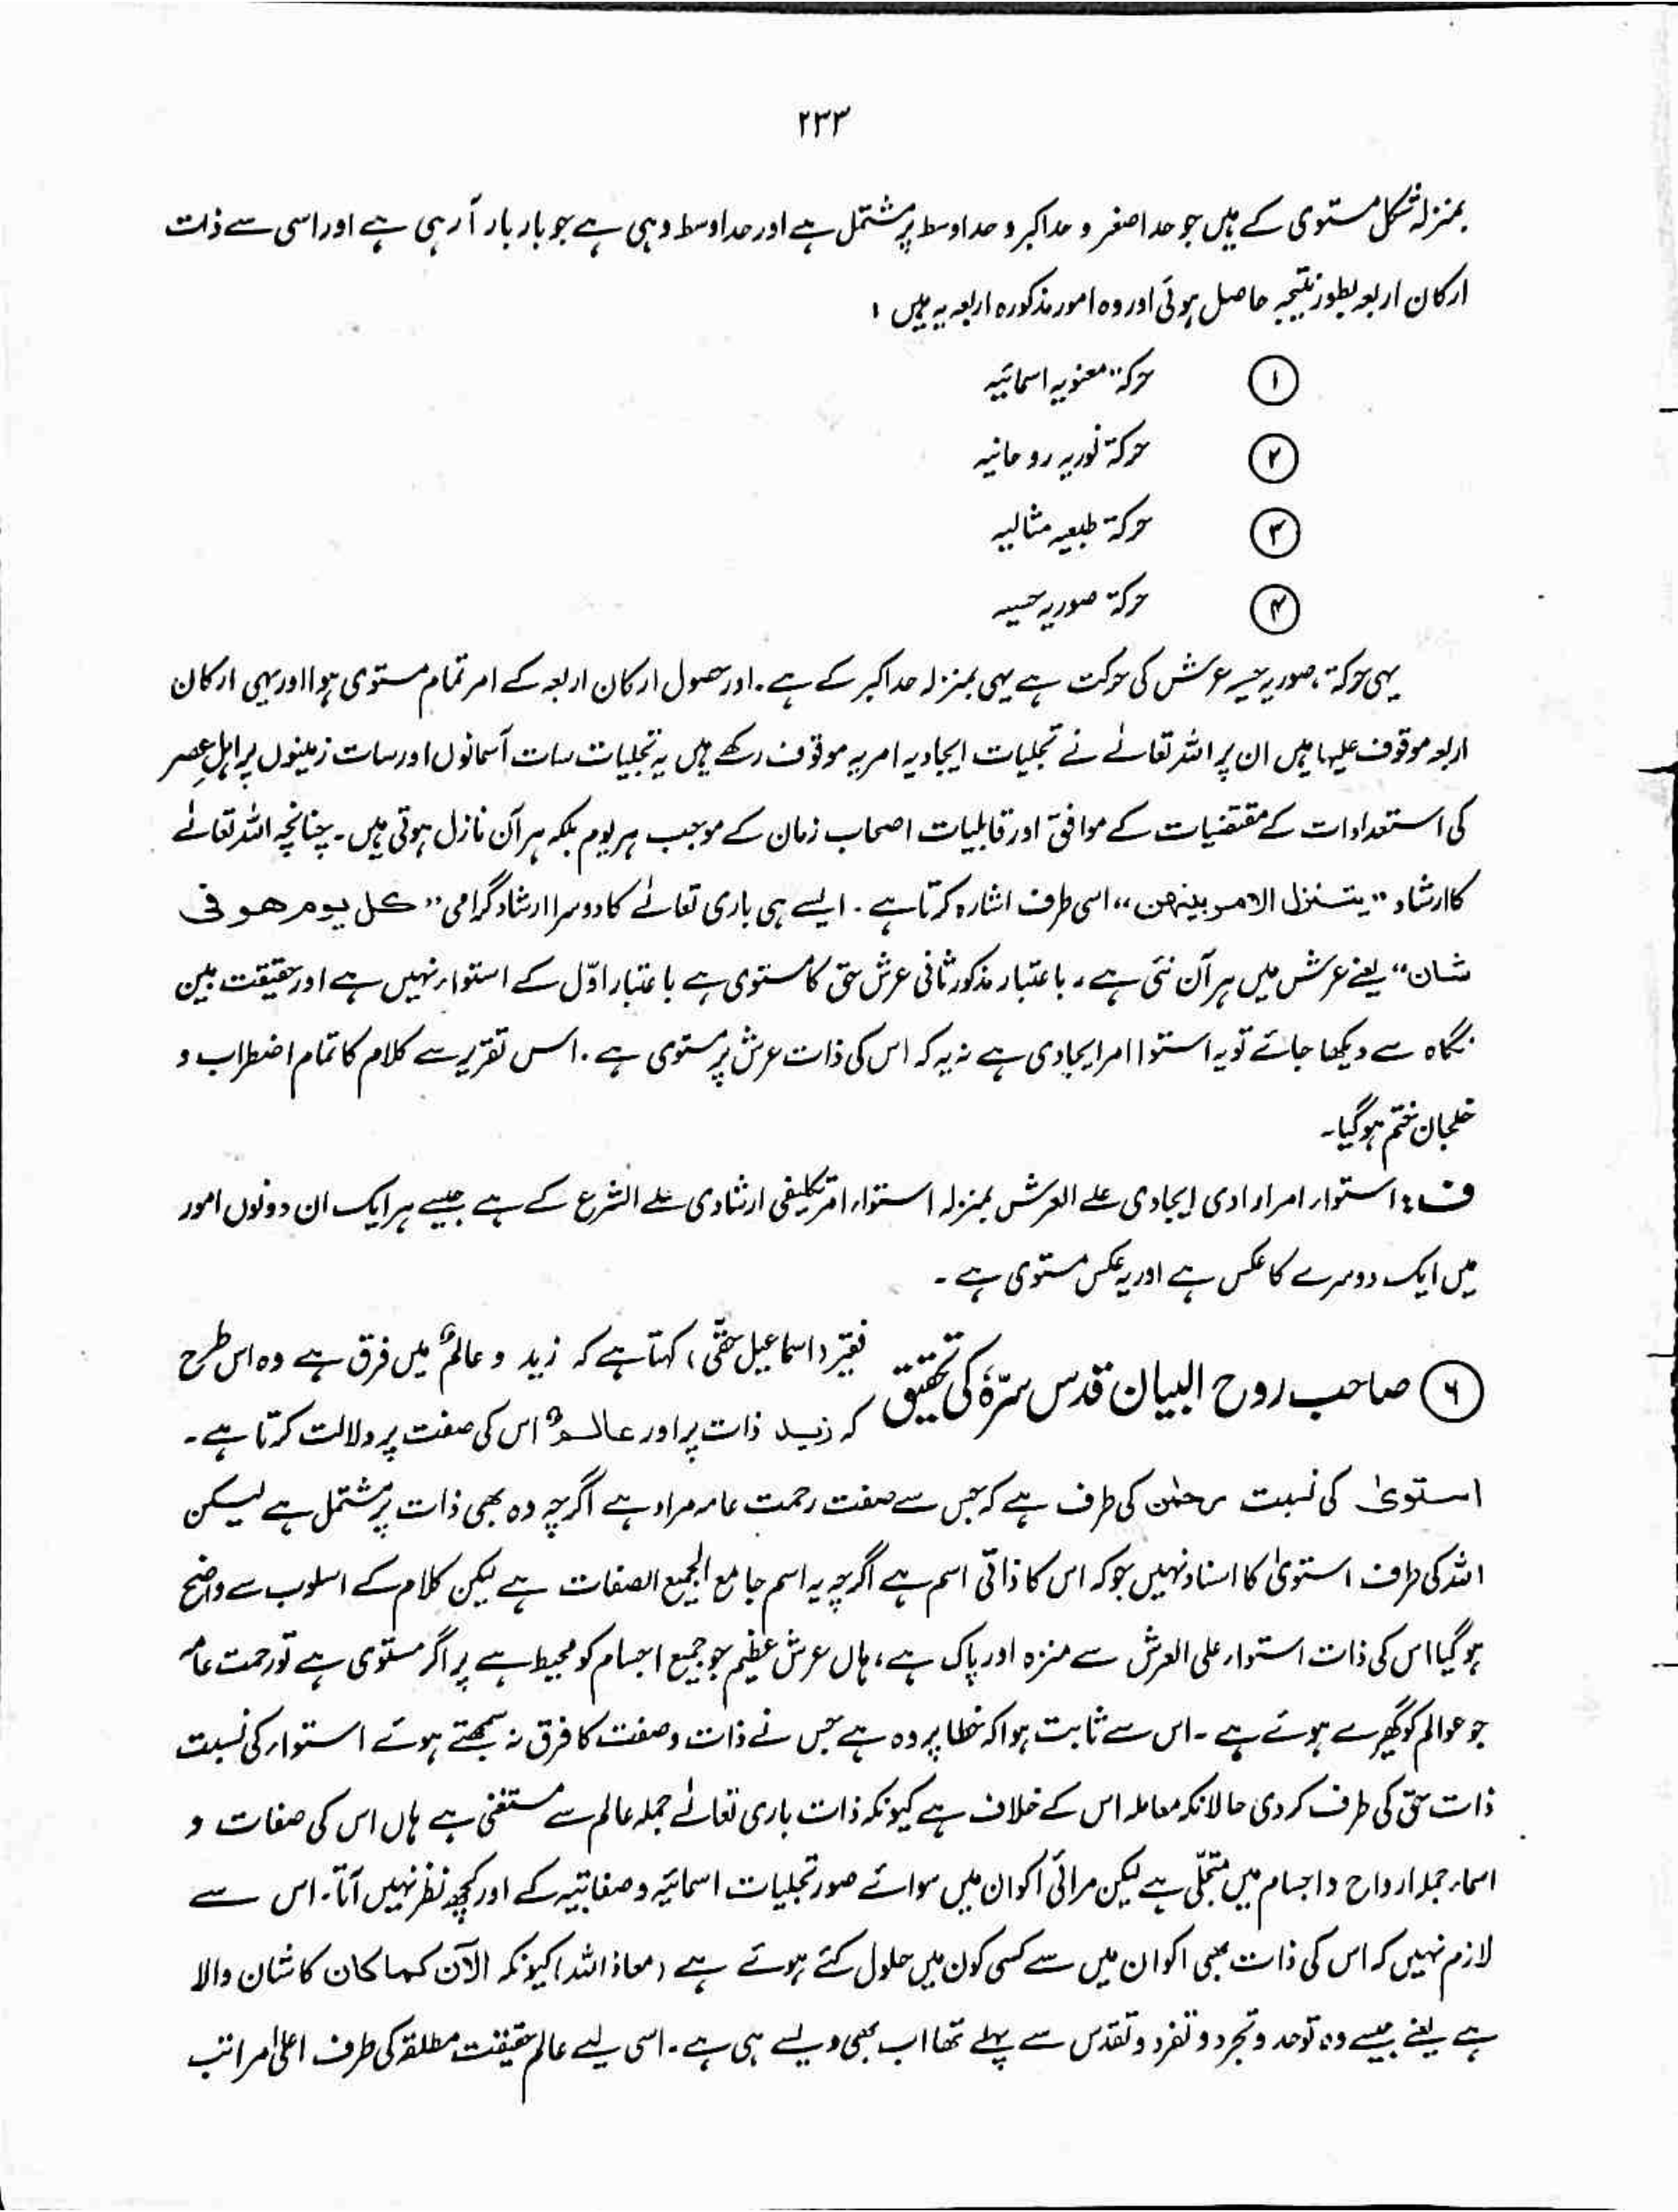 ۲۳۳
بمنزلہ شکل مستوی کے ہیں جو حد اصغر و حد اکبر و حد اوسط پر مشتمل ہے اور حد اوسط وہی ہے جو بار بار آ رہی ہے اور اسی سے ذات
ارکان اربعہ بطور نتیجہ حاصل ہوئی اور وہ امور مذکورہ اربعہ یہ ہیں ؛
① حرکۃ معنویہ اسمائیہ
② حرکۃ نوریہ روحانیہ
③ حرکۃ طبعیہ مثالیہ
④ حرکۃ صوریہ حسیہ
یہی حرکۃ، صوریہ حسیہ عرش کی حرکت ہے یہی بمنزلہ حد اکبر کے ہے۔ اور حصول ارکان اربعہ کے امر تمام مستوی ہوا اور یہی ارکان
اربعہ موقوف علیہا ہیں ان پر اللہ تعالےٰ نے تجلیات ایجادیہ امریہ موقوف رکھے ہیں یہ تجلیات سات آسمانوں اور سات زمینوں پر اہل عصر
کی استعدادات کے مقتضیات کے موافق اور قابلیات اصحاب زمان کے موجب ہر یوم بلکہ ہر آن نازل ہوتی ہیں۔ چنانچہ اللہ تعالےٰ
کا ارشاد ”یتنزل الامر بینہن“ اسی طرف اشارہ کرتا ہے۔ ایسے ہی باری تعالےٰ کا دوسرا ارشاد گرامی ”کل یوم ھو فی
شان“ یعنے عرش میں ہر آن نئی ہے۔ باعتبار مذکور ثانی عرش حق کا مستوی ہے باعتبار اوّل کے استواء نہیں ہے اور حقیقت بین
نگاہ سے دیکھا جائے تو یہ استوا امر ایجادی ہے نہ یہ کہ اس کی ذات عرش پر مستوی ہے۔ اس تقریر سے کلام کا تمام اضطراب و
خلجان ختم ہو گیا۔
ف : استواء امر ارادی ایجادی علے العرش بمنزلہ استواء امر تکلیفی ارشادی علے الشرع کے ہے جیسے ہر ایک ان دونوں امور
میں ایک دوسرے کا عکس ہے اور یہ عکس مستوی ہے۔
⑥ صاحب روح البیان قدس سرّہٗ کی تحقیق فقیر (اسماعیل حقّی) کہتا ہے کہ زید و عالمٌ میں فرق ہے وہ اس طرح
کہ زید ذات پر اور عالمٌ اس کی صفت پر دلالت کرتا ہے۔
استویٰ کی نسبت رحمٰن کی طرف ہے کہ جس سے صفت رحمت عامہ مراد ہے اگرچہ وہ بھی ذات پر مشتمل ہے لیکن
اللہ کی طرف استویٰ کا اسناد نہیں جو کہ اس کا ذاتی اسم ہے اگرچہ یہ اسم جامع الجمیع الصفات ہے لیکن کلام کے اسلوب سے واضح
ہو گیا اس کی ذات استواء علی العرش سے منزہ اور پاک ہے، ہاں عرش عظیم جو جمیع اجسام کو محیط ہے پر اگر مستوی ہے تو رحمت عامہ
جو عوالم کو گھیرے ہوئے ہے۔ اس سے ثابت ہوا کہ خطا پر وہ ہے جس نے ذات و صفت کا فرق نہ سمجھتے ہوئے استواء کی نسبت
ذات حق کی طرف کر دی حالانکہ معاملہ اس کے خلاف ہے کیونکہ ذات باری تعالےٰ جملہ عالم سے مستغنی ہے ہاں اس کی صفات و
اسماء جملہ ارواح و اجسام میں متجلّی ہے لیکن مرائی اکوان میں سوائے صور تجلیات اسمائیہ و صفاتیہ کے اور کچھ نظر نہیں آتا۔ اس سے
لازم نہیں کہ اس کی ذات بھی اکوان میں سے کسی کون میں حلول کئے ہوئے ہے (معاذ اللہ) کیونکہ الآن کما کان کا شان والا
ہے یعنے جیسے وہ توحد و تجرد و تفرد و تقدس سے پہلے تھا اب بھی ویسے ہی ہے۔ اسی لیے عالم حقیقت مطلقہ کی طرف اعلیٰ مراتب